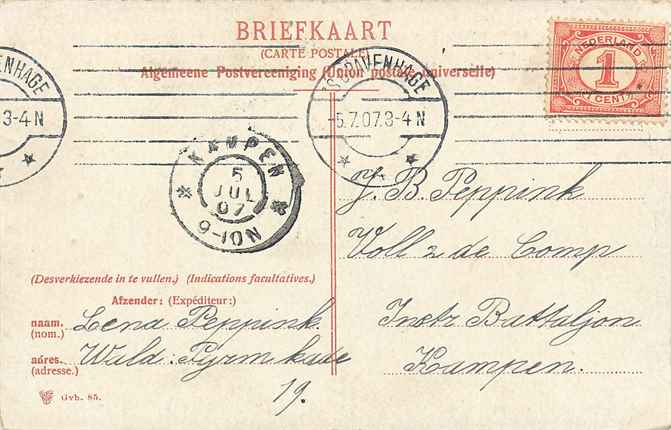 BRIEFKAART
(CARTE POSTALE)
Algemeene Postvereeniging (Union postale universelle)
NEDERLAND
1
1 CENT
ENHAGE
3-4 N
'S GRAVENHAGE
-5.7.07.3-4 N
KAMPEN
5
JUL
07
9-10N
J. B. Peppink
Voll 2 de Comp
Instr Battaljon
Kampen.
(Desverkiezende in te vullen.) (Indications facultatives.)
Afzender: (Expéditeur:)
naam. Lena Peppink.
(nom.)
adres. Wald. Pyrm kade
(adresse.)
19.
Gvb. 85.